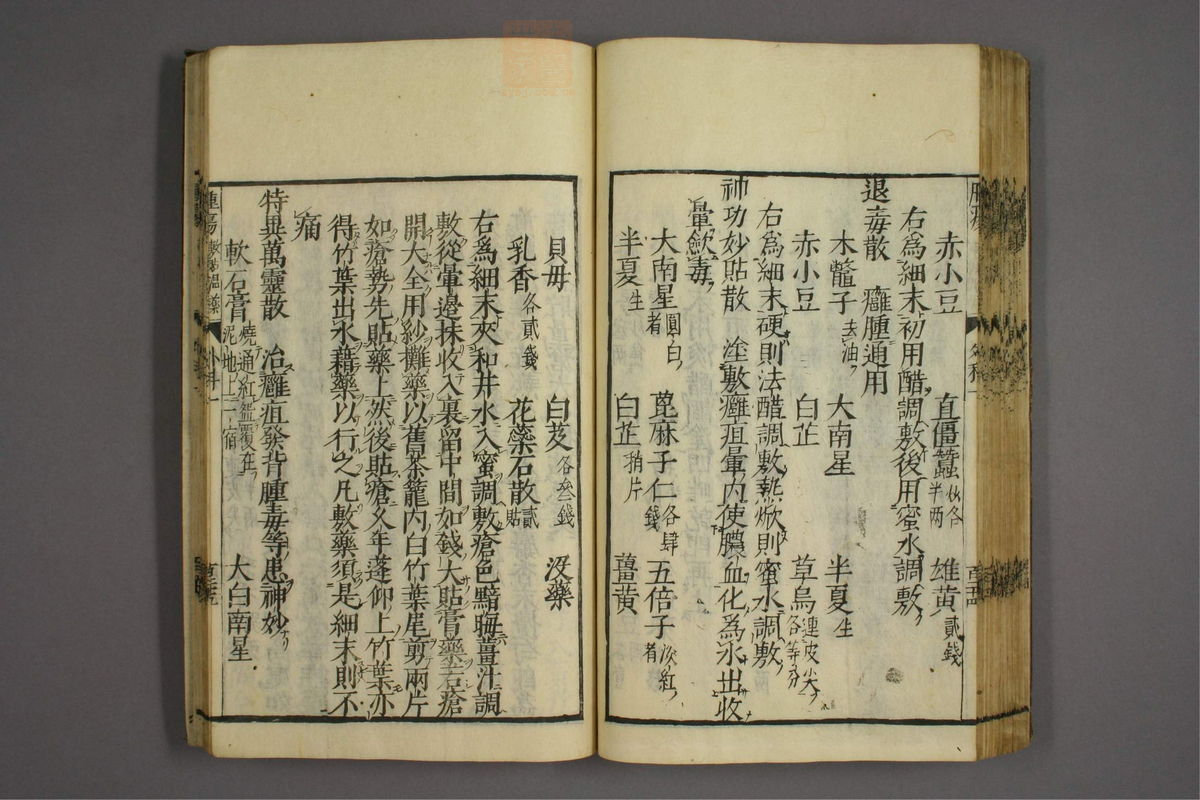 赤小豆 直僵蠶 炒各半兩 雄黃 貳錢
右爲細末初用醋調敷後用蜜水調敷
退毒散 癰腫通用
木鼈子 去油 大南星 半夏 生
赤小豆 白芷 草烏 連皮尖各等分
右爲細末硬則法醋調敷熱焮則蜜水調敷
神功妙貼散 塗敷癰疽暈內使膿血化爲水出收
暈歛毒
大南星 圓白者 萆麻子仁 各肆錢 五倍子 淡紅者
半夏 生 白芷 稍片 薑黃
貝母 白芨 各叁錢 沒藥
乳香 各貳錢 花蘂石散 貳貼
右爲細末夾和井水入蜜調敷瘡色黯晦薑汁調
敷從暈邊抹收入裏留中間如錢大貼膏藥若瘡
開大全用紗攤藥以舊茶籠內白竹葉尾剪兩片
如瘡勢先貼藥上然後貼瘡久年蓬仰上竹葉亦
得竹葉出水藉藥以行之凡敷藥須是細末則不
痛
特異萬靈散 治癰疽發背腫毒等患神妙
軟石膏 燒通紅鑑覆在泥地上一宿 大白南星
腫瘍 敷貼溫藥 外科一